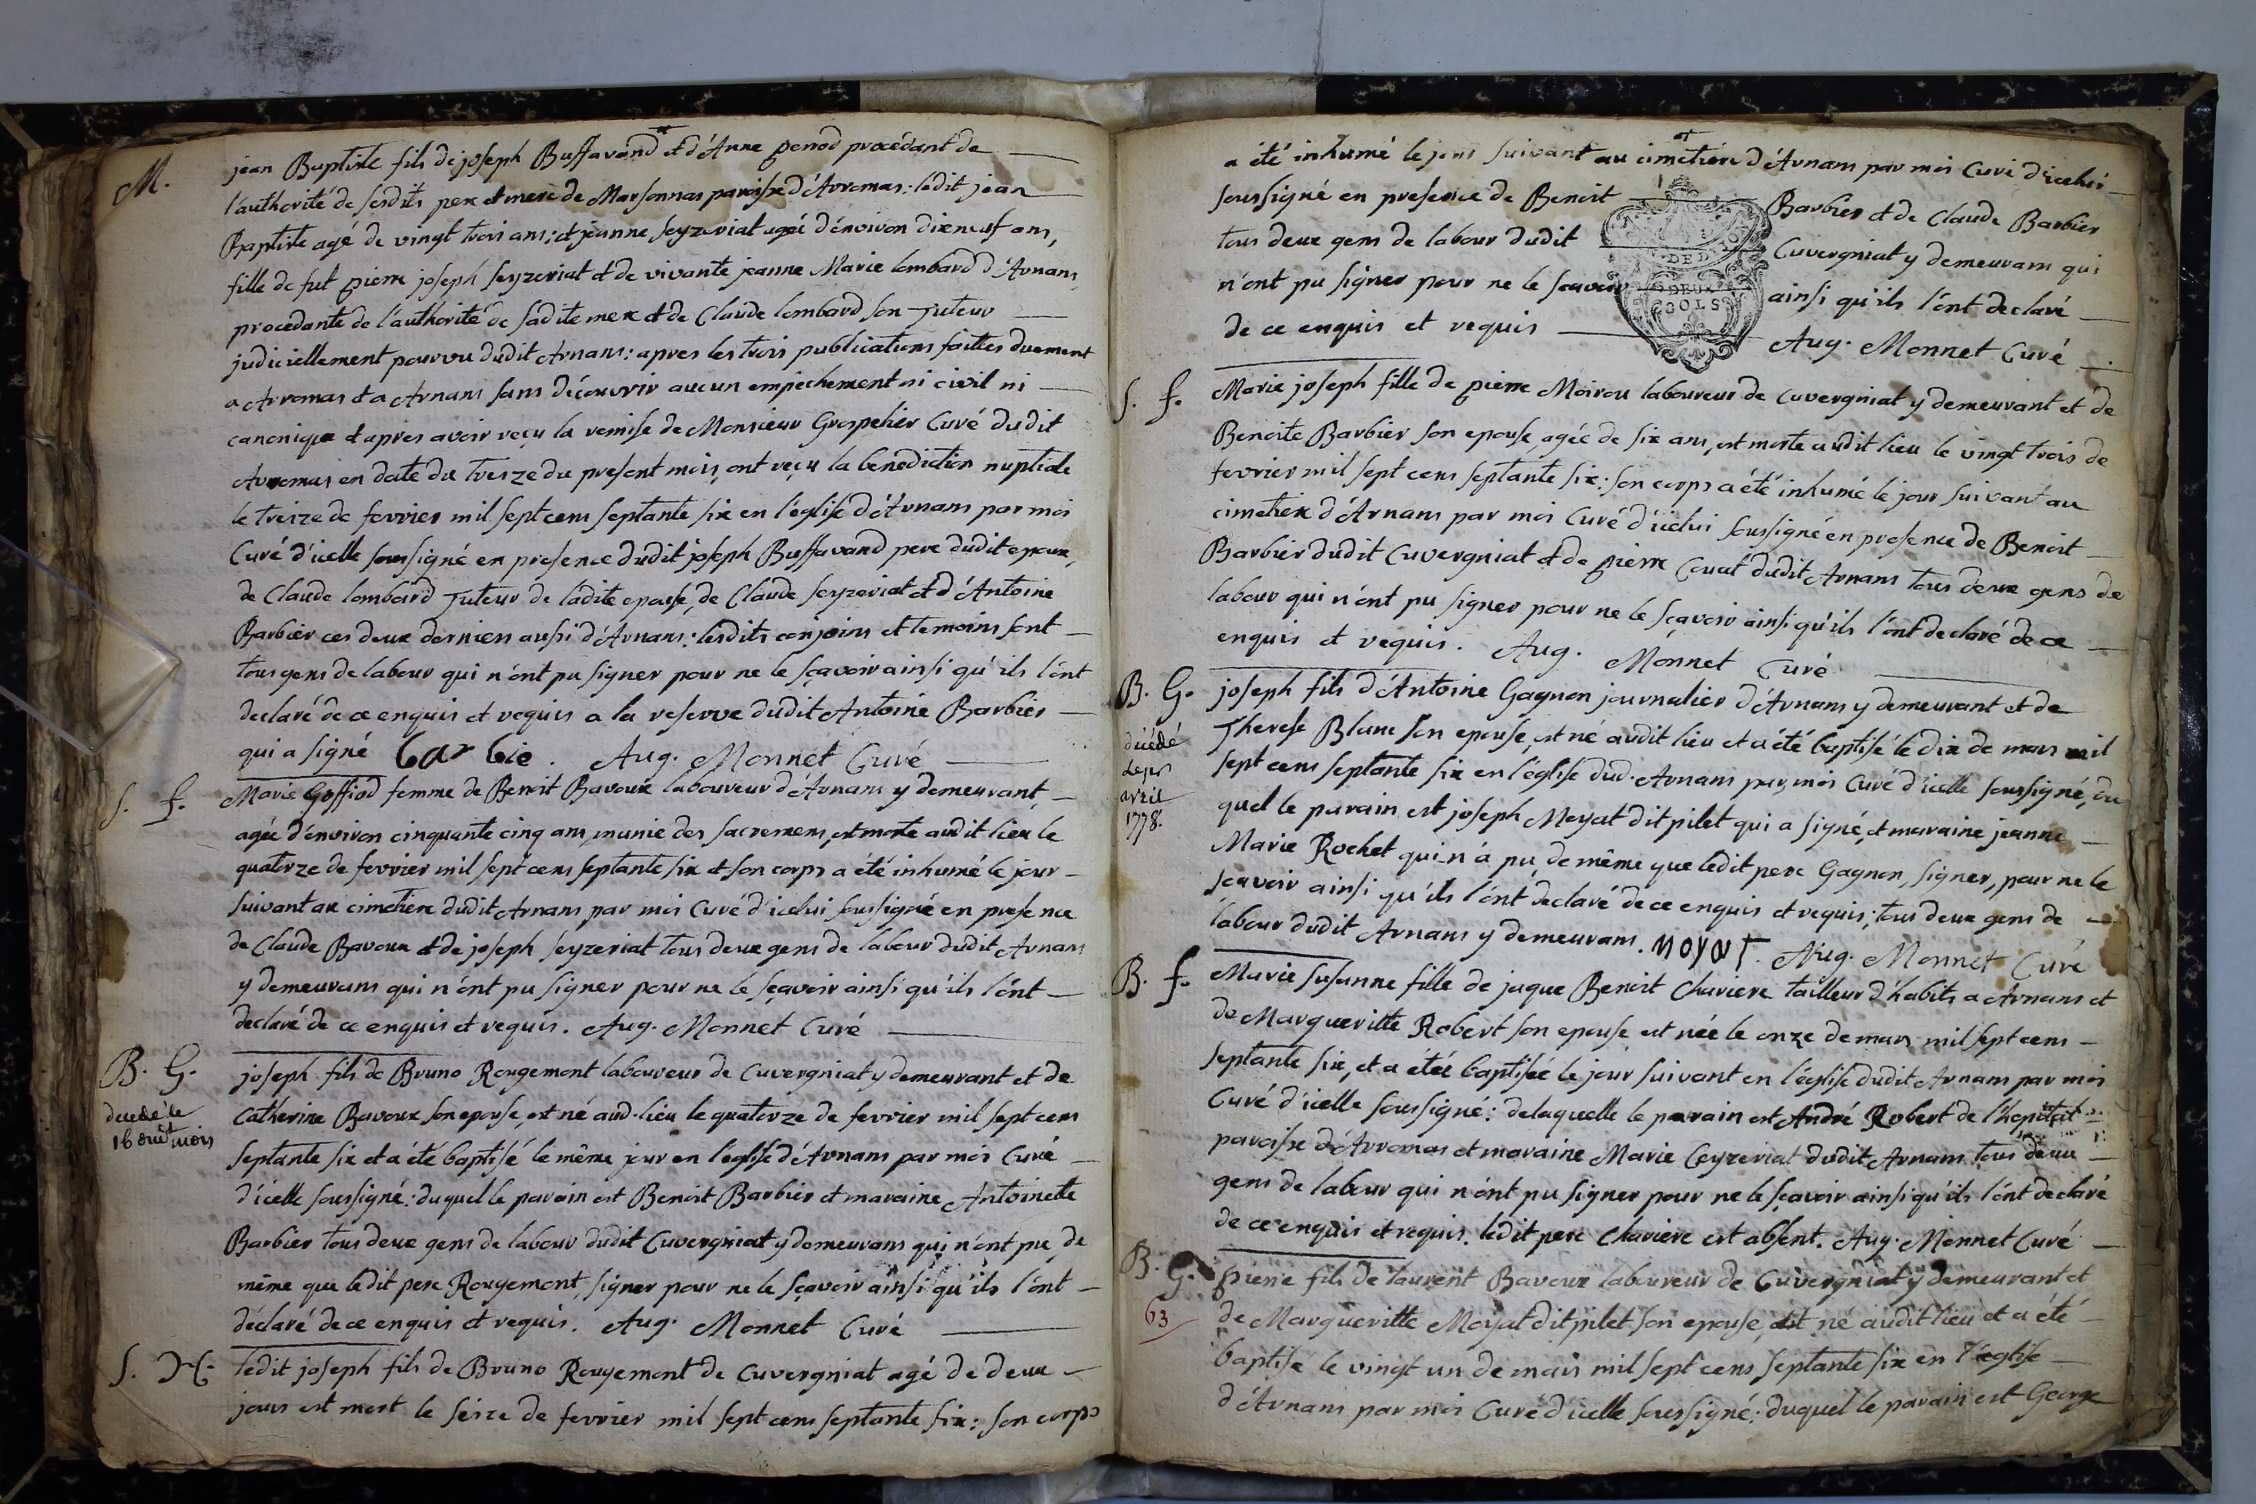 M.
jean Baptiste fils de joseph Buffavand et d'Anne Penod procédant de
l'authorité de sesdits pere et mere de Marsonnas paroisse d'Arromas: ledit jean
Baptiste agé de vingt trois ans; et jeanne Seyzeriat agée d'environ dixneuf ans,
fille de fut pierre joseph Seyzeriat et de vivante jeanne Marie lombard d'Arnans,
procedante de l'authorité de sadite mere et de Claude lombard son Tuteur
judiciellement pourvu dudit Arnans: apres les trois publications faites duement
a Arromas et a Arnans sans découvrir aucun empechement ni civil ni
canonique et apres avoir reçu la remise de Monsieur Grospelier Curé dudit
Arromas en date du treize du present mois, ont reçu la benediction nuptiale
le treize de fevrier mil sept cens septante six en l'eglise d'Arnans par moi
Curé d'icelle soussigné en presence dudit joseph Buffavand pere dudit epoux,
de Claude lombard Tuteur de ladite epouse, de Claude Seyzeriat et d'Antoine
Barbier ces deux derniers aussi d'Arnans: lesdits conjoins et temoins sont
tous gens de labour qui n'ont pu signer pour ne le sçavoir ainsi qu'ils l'ont
declaré de ce enquis et requis a la reserve dudit Antoine Barbier
qui a signé barbie. Aug. Monnet Curé
S. f.
Marie Goffiod femme de Benoit Bavoux laboureur d'Arnans y demeurant,
agée d'environ cinquante cinq ans, munie des sacremens, est morte audit lieu le
quatorze de fevrier mil sept cens septante six et son corps a été inhumé le jour
suivant au cimetiere dudit Arnans par moi Curé d'icelui soussigné en presence
de Claude Bavoux et de joseph Seyzeriat tous deux gens de labour dudit Arnans
y demeurans qui n'ont pu signer pour ne le sçavoir ainsi qu'ils l'ont
declaré de ce enquis et requis. Aug. Monnet Curé
B. G.
decede le
16 dud mois
joseph fils de Bruno Rougemont laboureur de Cuvergniat y demeurant et de
Catherine Bavoux son epouse, est né aud. lieu le quatorze de fevrier mil sept cens
septante six et a été baptisé le même jour en l'eglise d'Arnans par moi Curé
d'icelle soussigné: duquel le parain est Benoit Barbier et maraine Antoinette
Barbier tous deux gens de labour dudit Cuvergniat y demeurans qui n'ont pu, de
même que ledit pere Rougemont, signer pour ne le sçavoir ainsi qu'ils l'ont
déclaré de ce enquis et requis. Aug. Monnet Curé
S.
ledit joseph fils de Bruno Rougemont de Cuvergniat agé de deux
jours est mort le seize de fevrier mil sept cens septante six: son corps
a été inhumé le jour suivant au cimetiere d'Arnans par moi Curé d'icelui
soussigné en presence de Benoit Barbier et de Claude Barbier
tous deux gens de labour dudit Cuvergniat y demeurans qui
n'ont pu signer pour ne le scavoir ainsi qu'ils l'ont declaré
de ce enquis et requis Aug. Monnet Curé
DEUX
SOLS
S. f.
Marie joseph fille de pierre Moirou laboureur de Cuvergniat y demeurant et de
Benoite Barbier son epouse, agée de six ans, est morte audit lieu le vingt trois de
fevrier mil sept cens septante six: son corps a été inhumé le jour suivant au
cimetiere d'Arnans par moi Curé d'icelui soussigné en presence de Benoit
Barbier dudit Cuvergniat et de pierre dudit Arnans tous deux gens de
labour qui n'ont pu signer pour ne le sçavoir ainsi qu'ils l'ont declaré de ce
enquis et requis. Aug. Monnet Curé
B. G.
décédé
avril
1778.
joseph fils d'Antoine Gagnon journalier d'Arnans y demeurant et de
Therese Blanc son epouse, est né audit lieu et a été baptisé le dix de mars mil
sept cens septante six en l'église dud. Arnans par moi Curé d'icelle soussigné, du
quel le parain est joseph Moyat dit pilet qui a signé, et maraine jeanne
Marie Rochet qui n'a pu, de même que ledit pere Gagnon, signer, pour ne le
scavoir ainsi qu'ils l'ont declaré de ce enquis et requis; tous deux gens de
labour dudit Arnans y demeurans. moyat. Aug. Monnet Curé
B. f.
Marie Susanne fille de jaque Benoit Chariere tailleur d'habits a Arnans et
de Margueritte Robert son epouse est née le onze de mars mil sept cens
septante six, et a etée baptisée le jour suivant en l'église dudit Arnans par moi
Curé d'icelle soussigné: de laquelle le parain est André Robert de l'hopital
paroisse d'Arromas et maraine Marie Ceyzeriat dudit Arnans tous deux
gens de labour qui n'ont pu signer pour ne le sçavoir ainsi qu'ils l'ont declaré
de ce enquis et requis. ledit pere Chariere est absent. Aug. Monnet Curé
B. G.
63
pierre fils de laurent Bavoux laboureur de Cuvergniat y demeurant et
de Margueritte Moyat dit pilet son epouse, est né audit lieu et a été
baptisé le vingt un de mars mil sept cens septante six en l'église
d'Arnans par moi Curé d'icelle soussigné: duquel le parain est George